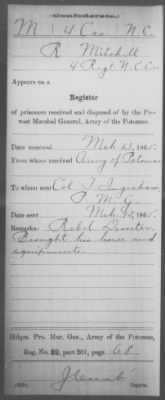 (Confederate.)
M 4 Cav N.C.
R Mitchell
4 Regt. N.C. Cav
Appears on a
Register
of prisoners received and disposed of by the Provost Marshal General, Army of the Potomac.
Date received Mch 23, 1865.
From whom received Army of Potomac
To whom sent Col T. Ingraham
P. M. G.
Date sent Mch 25, 1865.
Remarks: Rebel Deserter.
Brought his horse and
equipments.
Hdqrs. Pro. Mar. Gen., Army of the Potomac,
Reg. No. 32, part 201, page 68
Copyist.